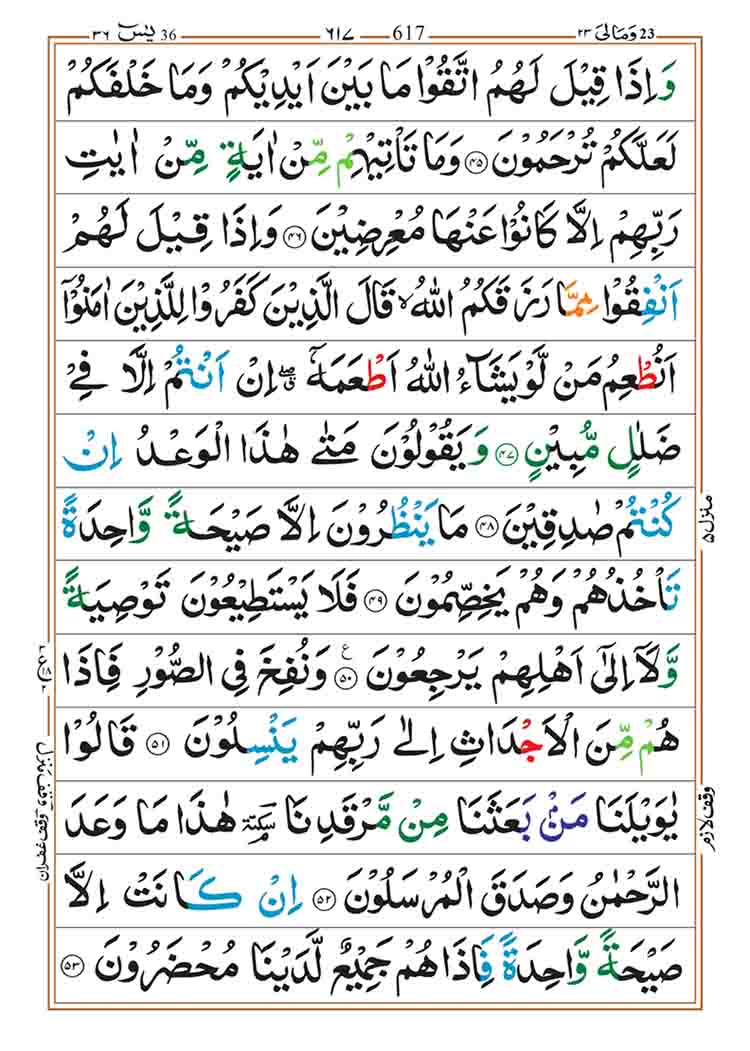 36 يٰسٓ ٣٦
617 ٦١٧
23 وَمَالِیَ ٢٣
وَاِذَا قِيْلَ لَهُمُ اتَّقُوْا مَا بَيْنَ اَيْدِيْكُمْ وَمَا خَلْفَكُمْ
لَعَلَّكُمْ تُرْحَمُوْنَ ۴۵ وَمَا تَاْتِيْهِمْ مِّنْ اٰيَةٍ مِّنْ اٰيٰتِ
رَبِّهِمْ اِلَّا كَانُوْا عَنْهَا مُعْرِضِيْنَ ۴۶ وَاِذَا قِيْلَ لَهُمْ
اَنْفِقُوْا مِمَّا رَزَقَكُمُ اللّٰهُ ۙ قَالَ الَّذِيْنَ كَفَرُوْا لِلَّذِيْنَ اٰمَنُوْٓا
اَنُطْعِمُ مَنْ لَّوْ يَشَآءُ اللّٰهُ اَطْعَمَهٗٓ ۖق اِنْ اَنْتُمْ اِلَّا فِیْ
ضَلٰلٍ مُّبِيْنٍ ۴۷ وَيَقُوْلُوْنَ مَتٰی هٰذَا الْوَعْدُ اِنْ
كُنْتُمْ صٰدِقِيْنَ ۴۸ مَا يَنْظُرُوْنَ اِلَّا صَيْحَةً وَّاحِدَةً
تَاْخُذُهُمْ وَهُمْ يَخِصِّمُوْنَ ۴۹ فَلَا يَسْتَطِيْعُوْنَ تَوْصِيَةً
وَّلَآ اِلٰٓی اَهْلِهِمْ يَرْجِعُوْنَ ۵۰ ع وَنُفِخَ فِی الصُّوْرِ فَاِذَا
هُمْ مِّنَ الْاَجْدَاثِ اِلٰی رَبِّهِمْ يَنْسِلُوْنَ ۵۱ قَالُوْا
يٰوَيْلَنَا مَنْۢ بَعَثَنَا مِنْ مَّرْقَدِنَا سكتة هٰذَا مَا وَعَدَ
الرَّحْمٰنُ وَصَدَقَ الْمُرْسَلُوْنَ ۵۲ اِنْ كَانَتْ اِلَّا
صَيْحَةً وَّاحِدَةً فَاِذَا هُمْ جَمِيْعٌ لَّدَيْنَا مُحْضَرُوْنَ ۵۳
منزل ۵
وقف لازم
وقف غفران